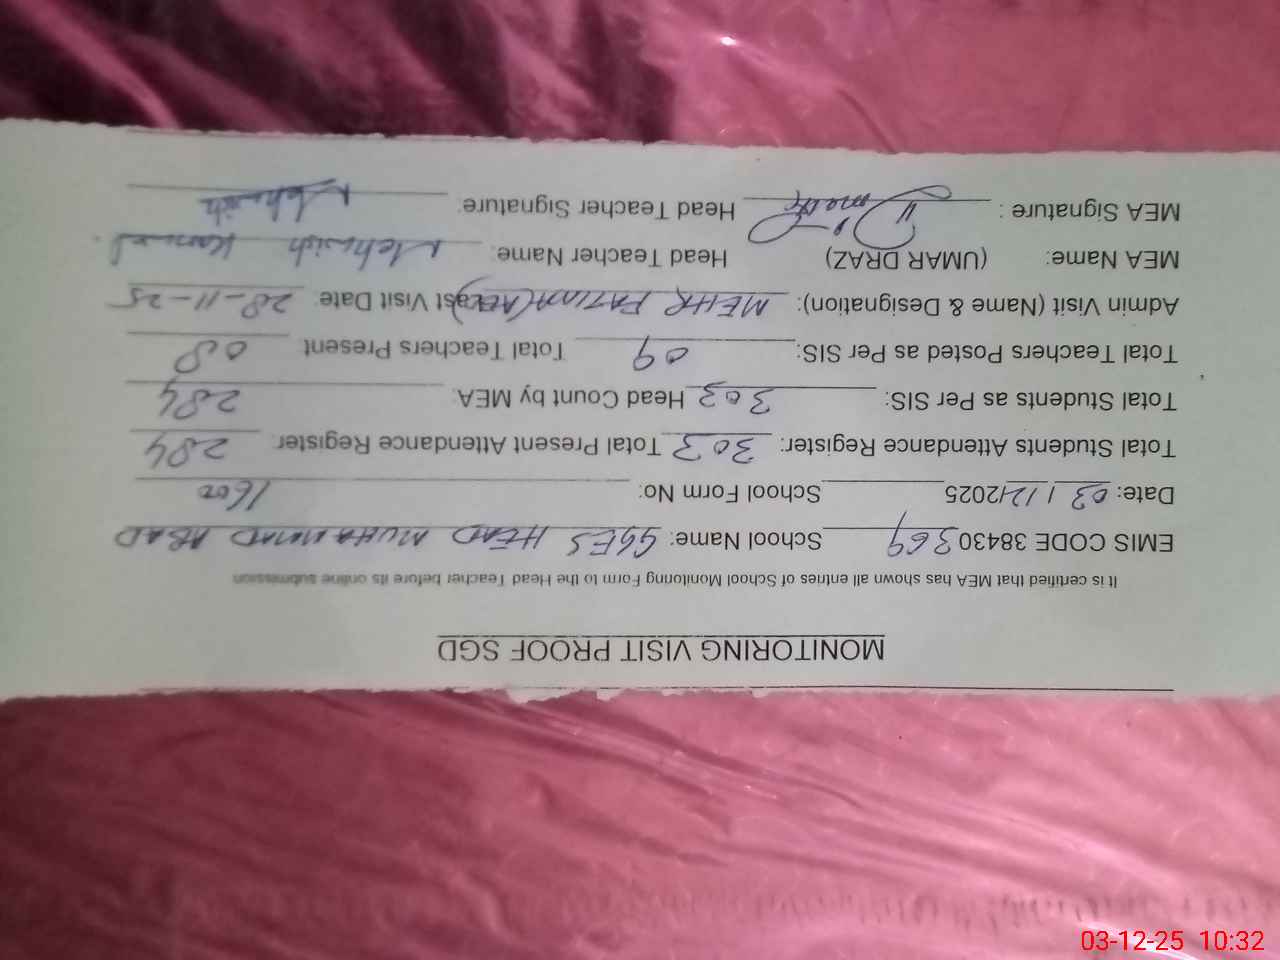 MONITORING VISIT PROOF SGD
It is certified that MEA has shown all entries of School Monitoring Form to the Head Teacher before its online submission
EMIS CODE 38430369 School Name: GGES HEAD MUHAMMAD ABAD
Date: 03/12/2025 School Form No: 1600
Total Students Attendance Register: 303 Total Present Attendance Register: 284
Total Students as Per SIS: 303 Head Count by MEA: 284
Total Teachers Posted as Per SIS: 09 Total Teachers Present 08
Admin Visit (Name & Designation): MEHR FATIMA Last Visit Date: 28-11-25
MEA Name: (UMAR DRAZ) Head Teacher Name: Mehwish Kanwal
MEA Signature : Head Teacher Signature: Mehwish
03-12-25 10:32